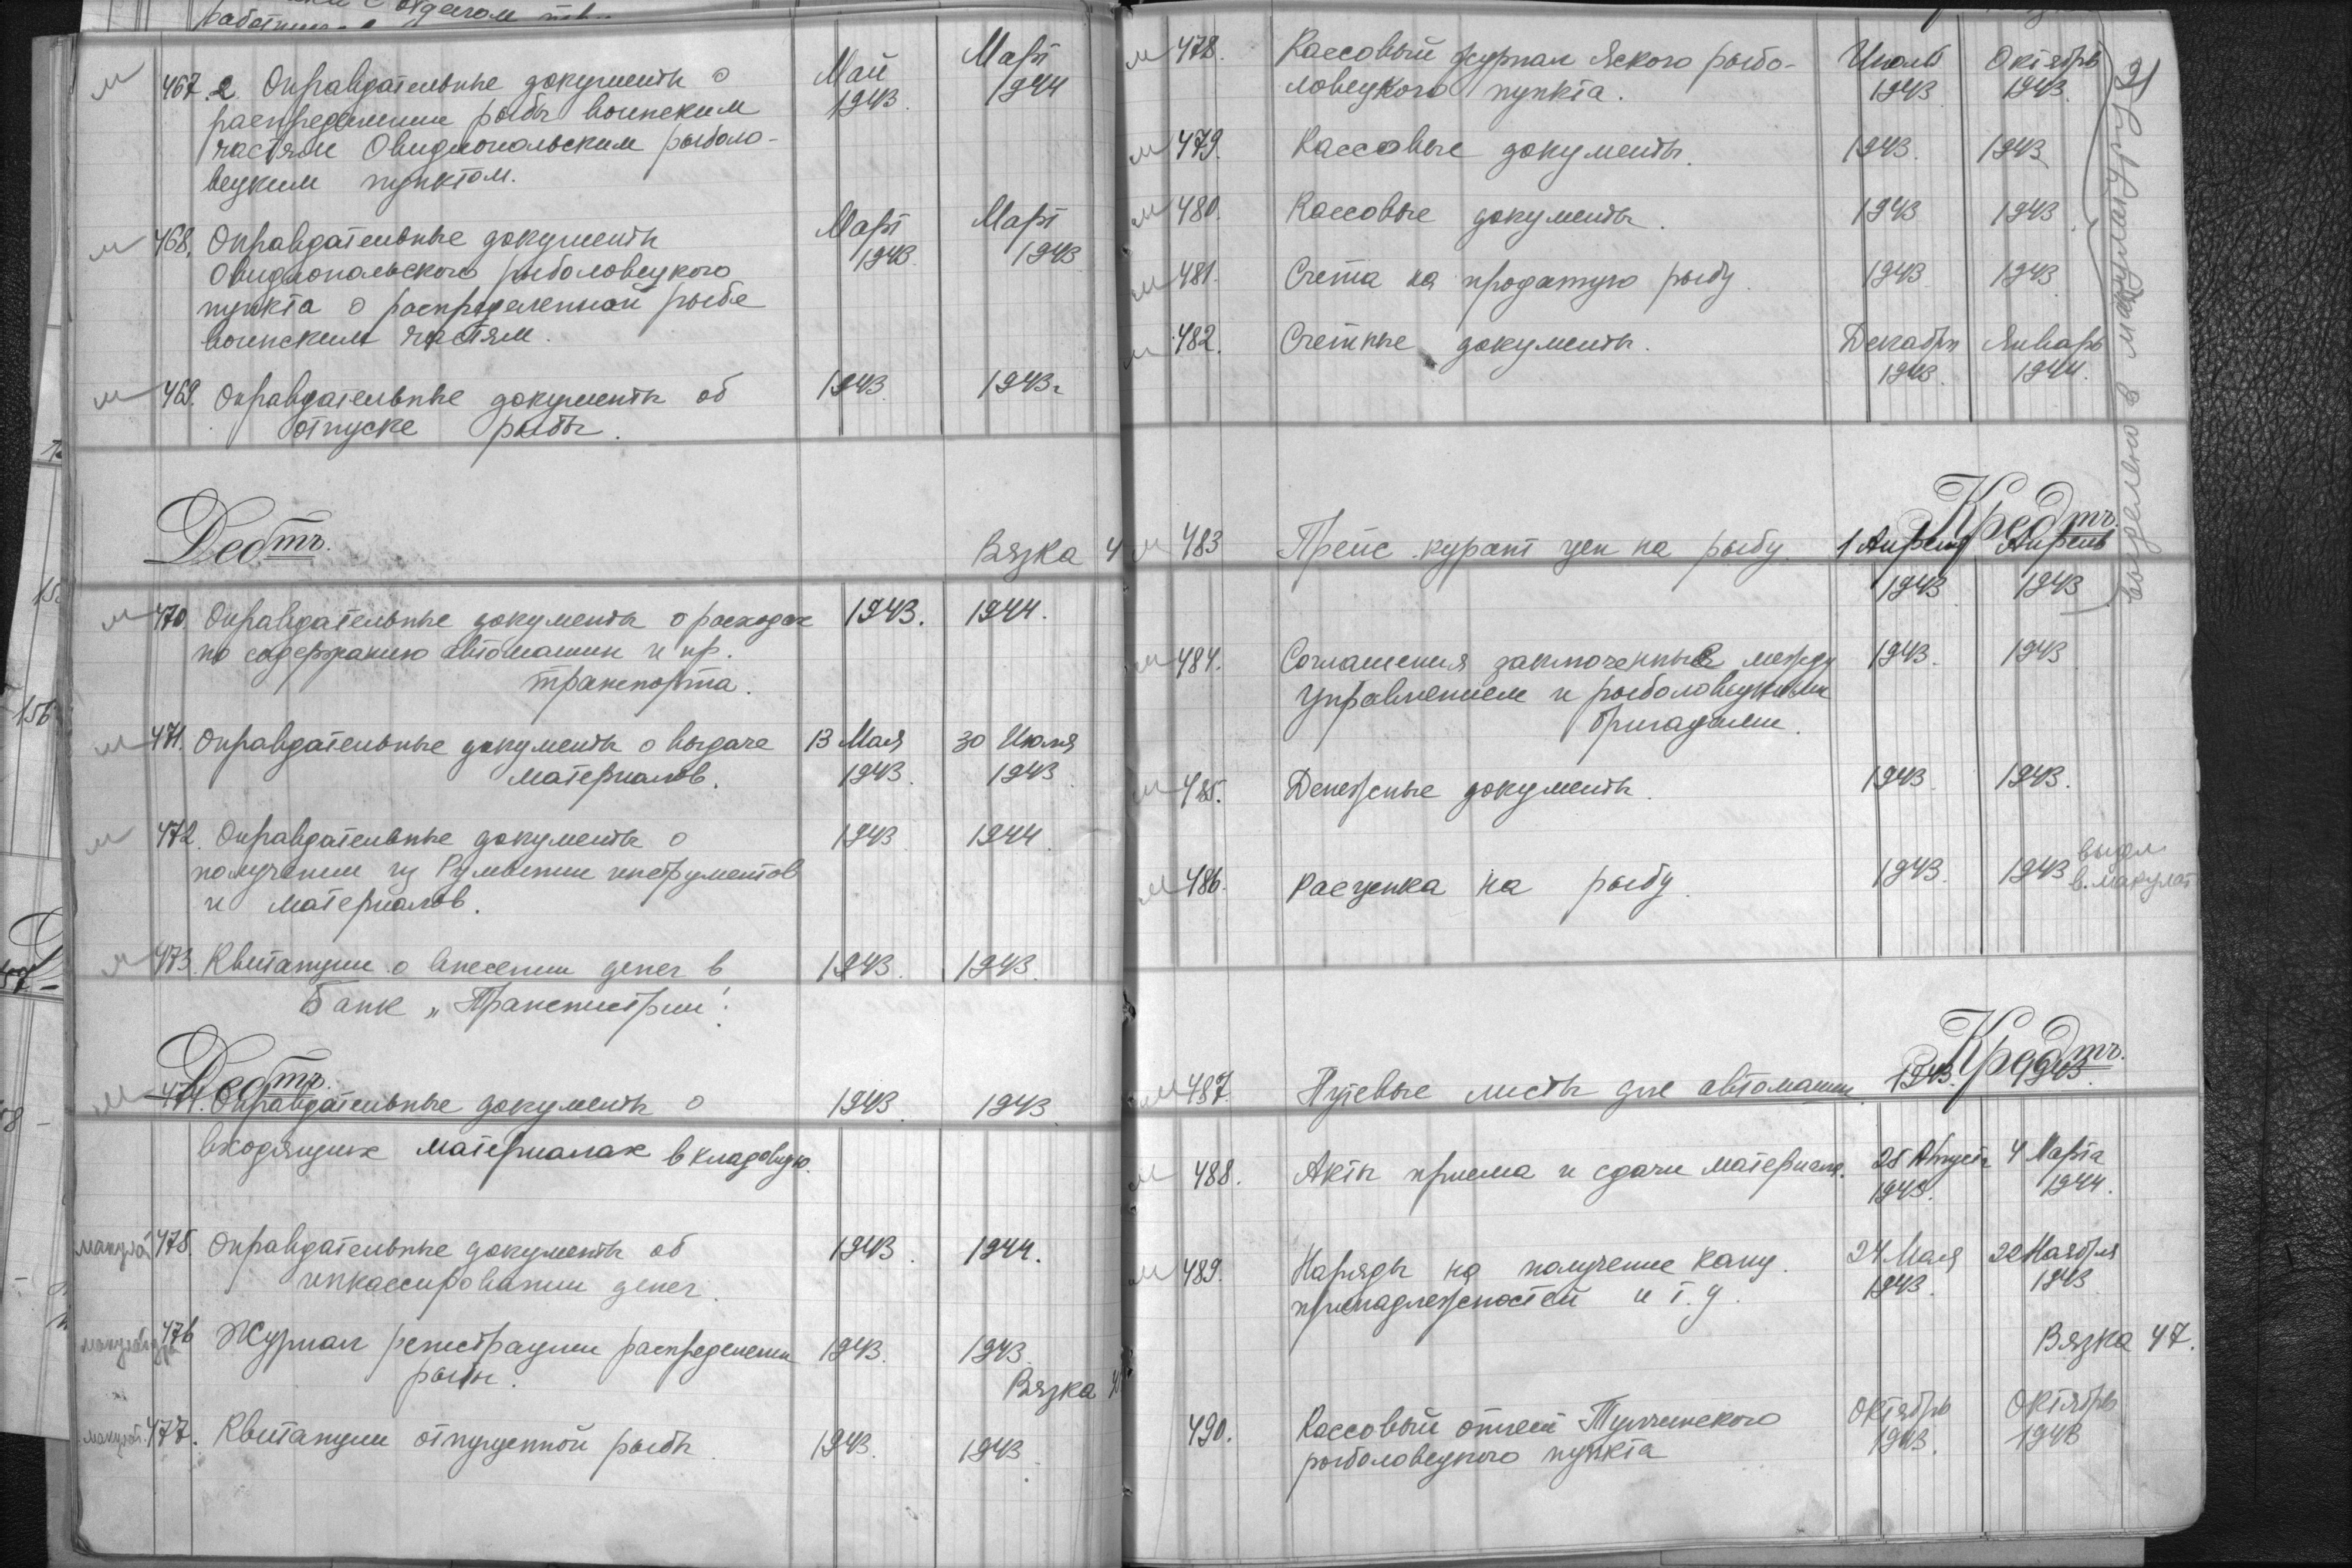 467.2. Оправдательные документы о Май Март
распределении рыбы воинским 1943. 1944
частям Овидиопольским рыболо-
вецким пунктом.
м 468. Оправдательные документы Март Март
Овидиопольского рыболовецкого 1943. 1943
пункта о распределенной рыбе
воинским частям.
м 469. Оправдательные документы об 1943. 1943г
отпуске рыбы.
Дебтъ.
Вязка 4
м 470. Оправдательные документы о расходах 1943. 1944.
по содержанию автомашин и пр.
транспорта.
м 471. Оправдательные документы о выдаче 13 Мая 30 Июля
материалов. 1943. 1943
м 472. Оправдательные документы о 1943 1944.
получении из Румынии инструментов
и материалов.
м 473. Квитанции о внесении денег в 1943. 1943.
Банк „Транснистрии".
Дебтъ.
м 474. Оправдательные документы о 1943. 1943
входящих материалах в кладовую.
макулат 475. Оправдательные документы об 1943. 1944.
инкассировании денег.
476 Журнал регистрации распределения 1943. 1943.
рыбы.
Вязка
макулат. 477. Квитанции отпущенной рыбы 1943. 1943.
21
м 478. Кассовый журнал Яского рыбо- Июль Октябрь
ловецкого пункта. 1943 1943
м 479. Кассовые документы. 1943. 1943
м 480. Кассовые документы. 1943 1943
м 481. Счета на проданную рыбу. 1943 1943
м 482. Счетные документы. Декабрь Январь
1943. 1944.
выделено в макулатуру
Кредтъ.
м 483 Прейс-курант цен на рыбу 1 Апреля Апрель
1943 1943
м 484. Соглашения заключенные между 1943. 1943
управлением и рыболовецкими
бригадами.
м 485. Денежные документы. 1943 1943.
м 486. Расценка на рыбу. 1943. 1943
выдел.
в макулат
Кредтъ.
м 487. Путевые листы для автомашин. 1943. 1943.
м 488. Акты приема и сдачи материала. 25 Августа 4 Марта
1943. 1944.
м 489. Наряды на получение канц. 24 Мая 22 Ноября
принадлежностей и т.д. 1943. 1943
Вязка 47.
490. Кассовый отчет Тульчинского Октябрь Октябрь
рыболовецкого пункта 1943. 1943